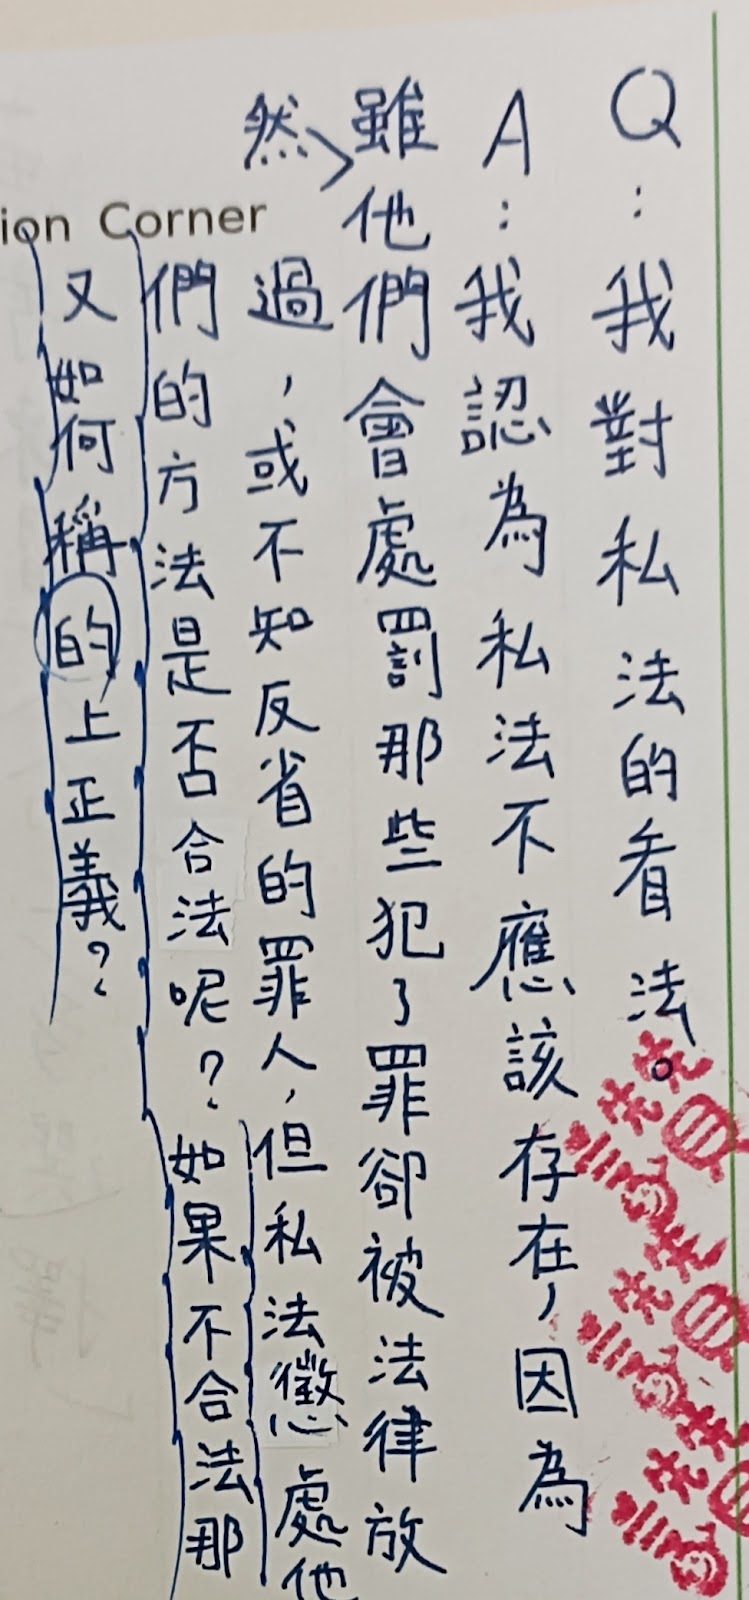 Q：我對私法的看法。
A：我認為私法不應該存在，因為
雖然他們會處罰那些犯了罪卻被法律放
過，或不知反省的罪人，但私法懲處他
們的方法是否合法呢？如果不合法那
又如何稱的上正義？
ion Corner